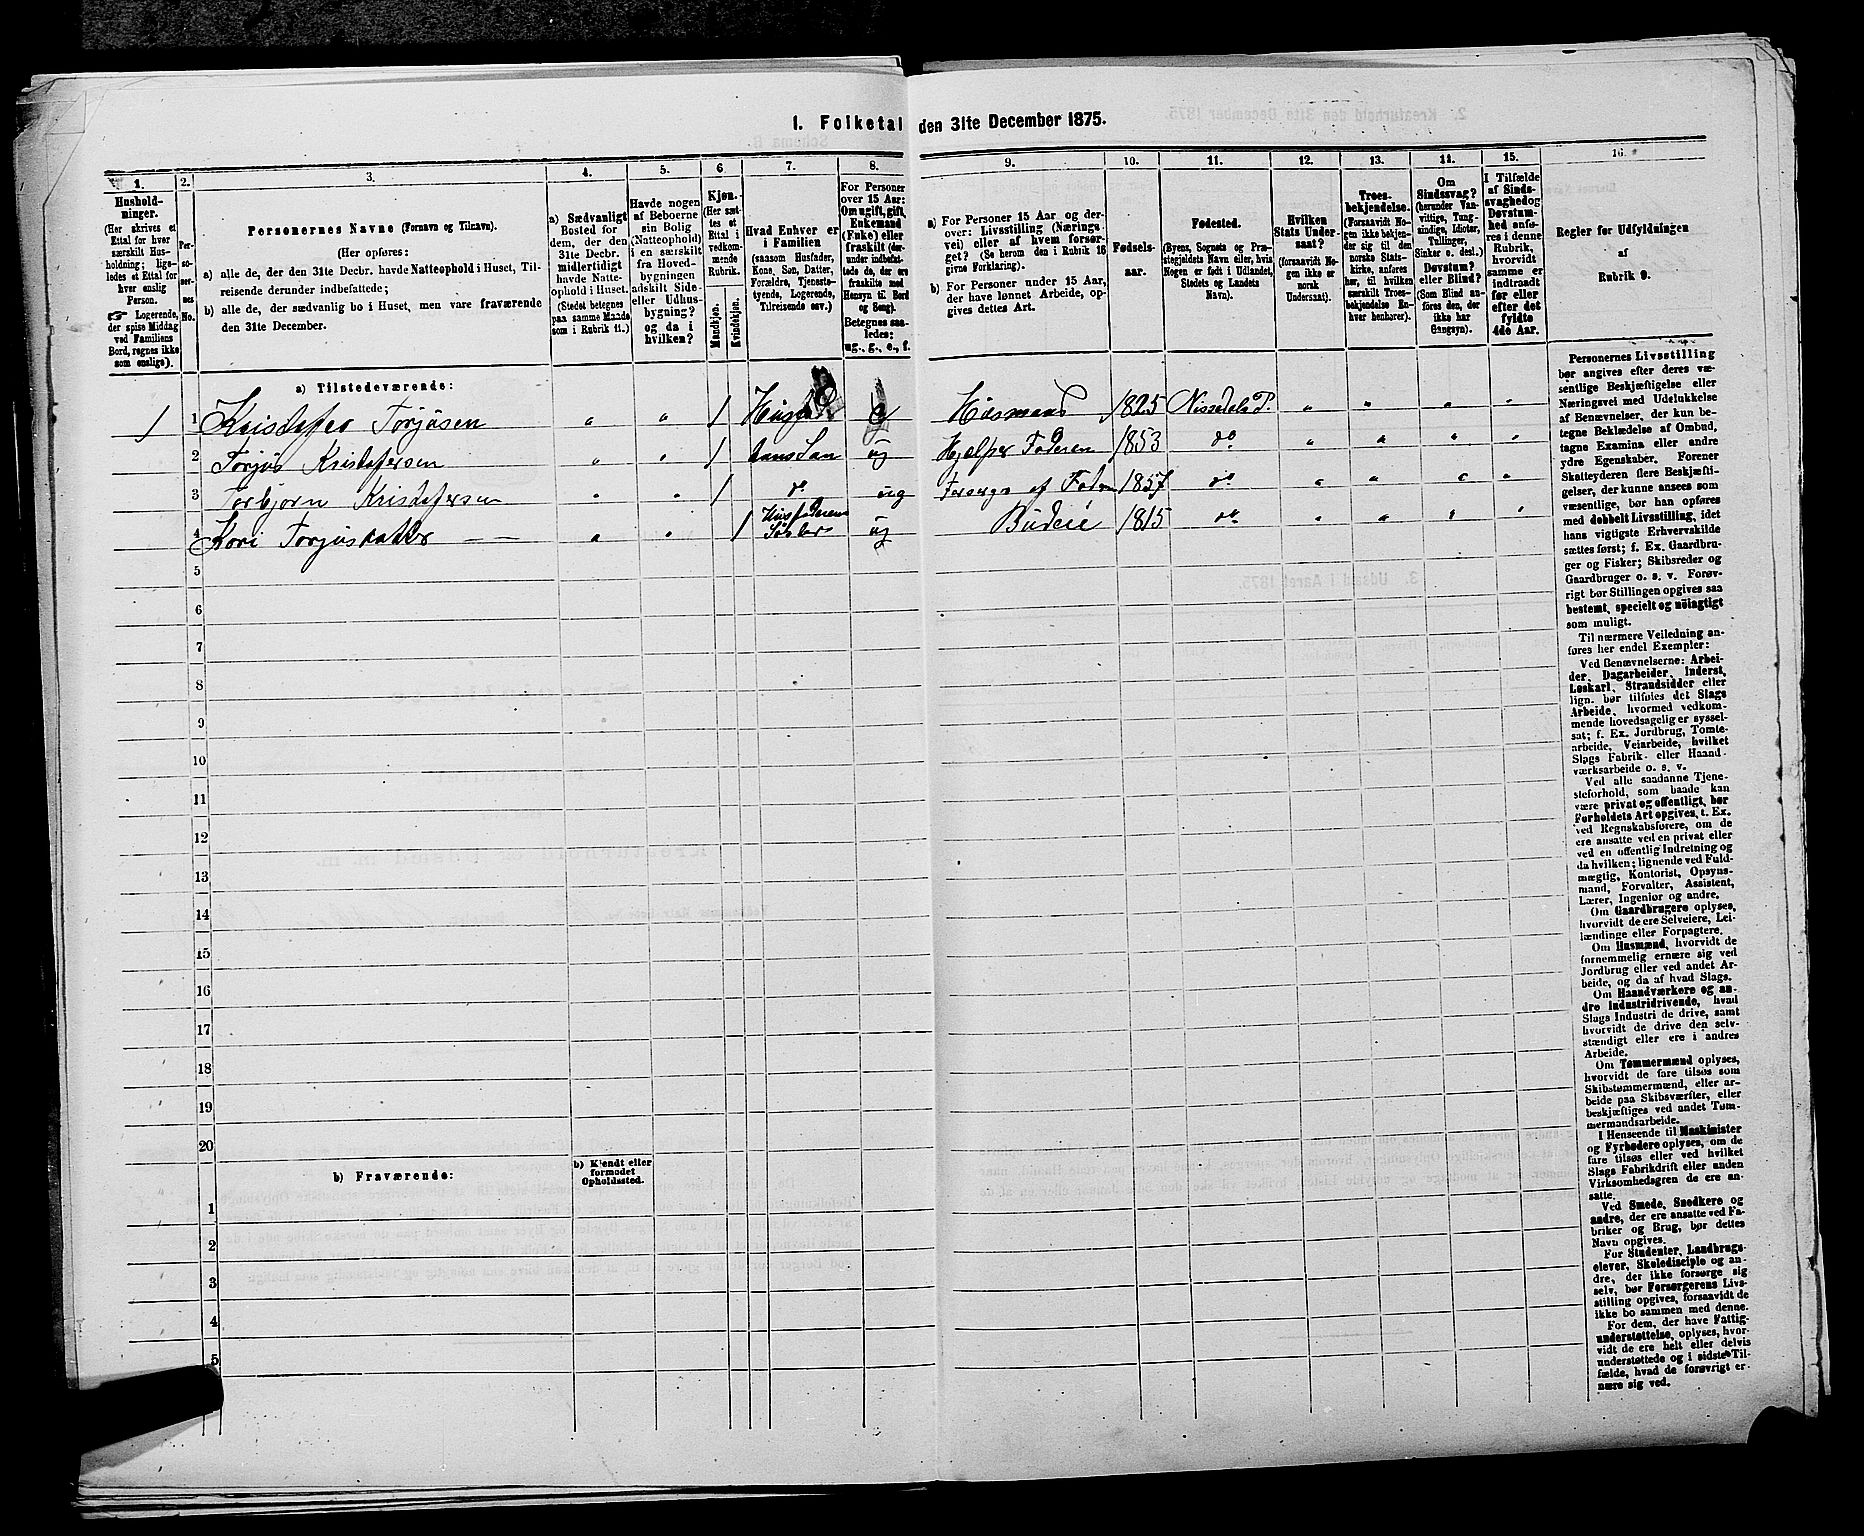 1. Folketal den 31te December 1875.
1. 2. 3. 4. 5. 6 7. 8. 9. 10. 11. 12. 13. 14. 15. 16.
Hushold-
ninger.
(Her skrives et
Ettal for hver
særskilt Hus-
holdning; lige-
ledes et Ettal for
hver enslig
Person.
☞ Logerende,
der spise Middag
ved Familiens
Bord, regnes ikke
som enslige).
Per-
so-
ner-
nes
No.
Personernes Navne (Fornavn og Tilnavn).
(Her opføres:
a) alle de, der den 31te Decbr. havde Natteophold i Huset, Til-
reisende derunder indbefattede;
b) alle de, der sædvanlig bo i Huset, men vare fraværende
den 31te December.
a) Sædvanligt
Bosted for
dem, der den
31te Decbr.
midlertidigt
havde Natte-
ophold i Huset.
(Stedet betegnes
paa samme Maade
som i Rubrik 11.)
Havde nogen
af Beboerne
sin Bolig
(Natteophold)
i en særskilt
fra Hoved-
bygningen
adskilt Side-
eller Udhus-
bygning?
og da i
hvilken?
Kjøn.
(Her sæt-
tes et
Ettal i
vedkom-
mende
Rubrik.
Mandkjøn.
Kvindekjøn.
Hvad Enhver er
i Familien
(saasom Husfader,
Kone, Søn, Datter,
Forældre, Tjeneste-
tyende, Logerende,
Tilreisende osv.)
For Personer
over 15 Aar:
Om ugift, gift,
Enkemand
(Enke) eller
fraskilt (der-
under indbefat-
tede de, der ere
fraskilte med
Hensyn til Bord
og Seng).
Betegnes saa-
ledes:
ug., g., e., f.
a) For Personer 15 Aar og der-
over: Livsstilling (Nærings-
vei) eller af hvem forsør-
get? (Se herom den i Rubrik 16
givne Forklaring).
b) For Personer under 15 Aar,
der have lønnet Arbeide, op-
gives dettes Art.
Fødsels-
aar.
Fødested.
(Byens, Sognets og Præ-
stegjeldets Navn eller, hvis
Nogen er født i Udlandet,
Stedets og Landets
Navn).
Hvilken
Stats Under-
saat?
(forsaavidt No-
gen ikke er
norsk
Undersaat).
Troes-
bekjendelse.
(Forsaavidt No-
gen ikke bekjen-
der sig til den
norske Stats-
kirke, anføres
her, til hvilken
særskilt Troes-
bekjendelse En-
hver henhører).
Om
Sindssvag?
(herunder Van-
vittige, Tung-
sindige, Idioter,
Tullinger,
Sinker o. desl.)
Døvstum?
eller Blind?
(Som Blind an-
føres den, der
ikke har
Gangsyn).
I Tilfælde
af Sinds-
svaghed og
Døvstum-
hed anfø-
res i denne
Rubrik,
hvorvidt
samme er
indtraadt
før eller
efter det
fyldte
4de Aar.
Regler for Udfyldningen
af
Rubrik 9.
a) Tilstedeværende:
1 1 Kristofer Torjusen " " 1 e Husmand 1825 Nissedals P. " " " "
2 Torjus Kristofersen " " 1 hans Søn ug Hjælper Faderen 1853 do " " " "
3 Torbjørn Kristofersen " " 1 do ug Forsørges af Faderen 1857 do " " " "
4 Kari Torjusdatter " " 1 Husfaderens Søster ug Budeie 1815 do " " " "
5
6
7
8
9
10
11
12
13
14
15
16
17
18
19
20
b) Fraværende:
b) Kjendt eller
formodet
Opholdssted.
1
2
3
4
5
Personernes Livsstilling
bør angives efter deres væ-
sentlige Beskjæftigelse eller
Næringsvei med Udelukkelse
af Benævnelser, der kun be-
tegne Beklædelse af Ombud,
tagne Examina eller andre
ydre Egenskaber. Forener
Skatteyderen flere Beskjæfti-
gelser, der kunne ansees som
væsentlige, bør han opføres
med dobbelt Livsstilling, idet
hans vigtigste Erhvervskilde
sættes først; f. Ex. Gaardbru-
ger og Fisker; Skibsreder og
Gaardbruger o. s. v. Forøv-
rigt bør Stillingen opgives saa
bestemt, specielt og nøiagtigt
som muligt.
Til nærmere Veiledning an-
føres her endel Exempler:
Ved Benævnelserne: Arbei-
der, Dagarbeider, Inderst,
Løskarl, Strandsidder eller
lign. bør tilføies det Slags
Arbeide, hvormed vedkom-
mende hovedsagelig er syssel-
sat; f. Ex. Jordbrug, Tomte-
arbeide, Veiarbeide, hvilket
Slags Fabrik- eller Haand-
værksarbeide o. s. v.
Ved alle saadanne Tjene-
steforhold, som baade kan
være privat og offentligt, bør
Forholdets Art opgives, t. Ex.
ved Regnskabsførere, om de
ere ansatte ved en privat eller
ved en offentlig Indretning og
da hvilken; lignende ved Fuld-
mægtig, Kontorist, Opsyns-
mand, Forvalter, Assistent,
Lærer, Ingeniør og andre.
Om Gaardbrugere oplyses,
hvorvidt de ere Selveiere, Lei-
lændinge eller Forpagtere.
Om Husmænd, hvorvidt de
fornemmelig ernære sig ved
Jordbrug eller ved andet Ar-
beide, og da af hvad Slags.
Om Haandværkere og an-
dre Industridrivende, hvad
Slags Industri de drive, samt
hvorvidt de drive den selv-
stændigt eller ere i andres
Arbeide.
Om Tømmermænd oplyses,
hvorvidt de fare tilsøs som
Skibstømmermænd, eller ar-
beide paa Skibsværfter, eller
beskjæftiges ved andet Tøm-
mermandsarbeide.
I Henseende til Maskinister
og Fyrbødere oplyses, om de
fare tilsøs eller ved hvilket
Slags Fabrikdrift eller anden
Virksomhedsgren de ere an-
satte.
Ved Smede, Snedkere og
andre, der ere ansatte ved Fa-
briker og Brug, bør dettes
Navn opgives.
For Studenter, Landbrugs-
elever, Skoledisciple og an-
dre, der ikke forsørge sig
selv, bør Forsørgerens Livs-
stilling opgives, forsaavidt de
ikke bo sammen med denne.
For dem, der have Fattig-
understøttelse, oplyses, hvor-
vidt de ere helt eller delvis
understøttede og i sidste Til-
fælde, hvad de forøvrigt er-
nære sig ved.